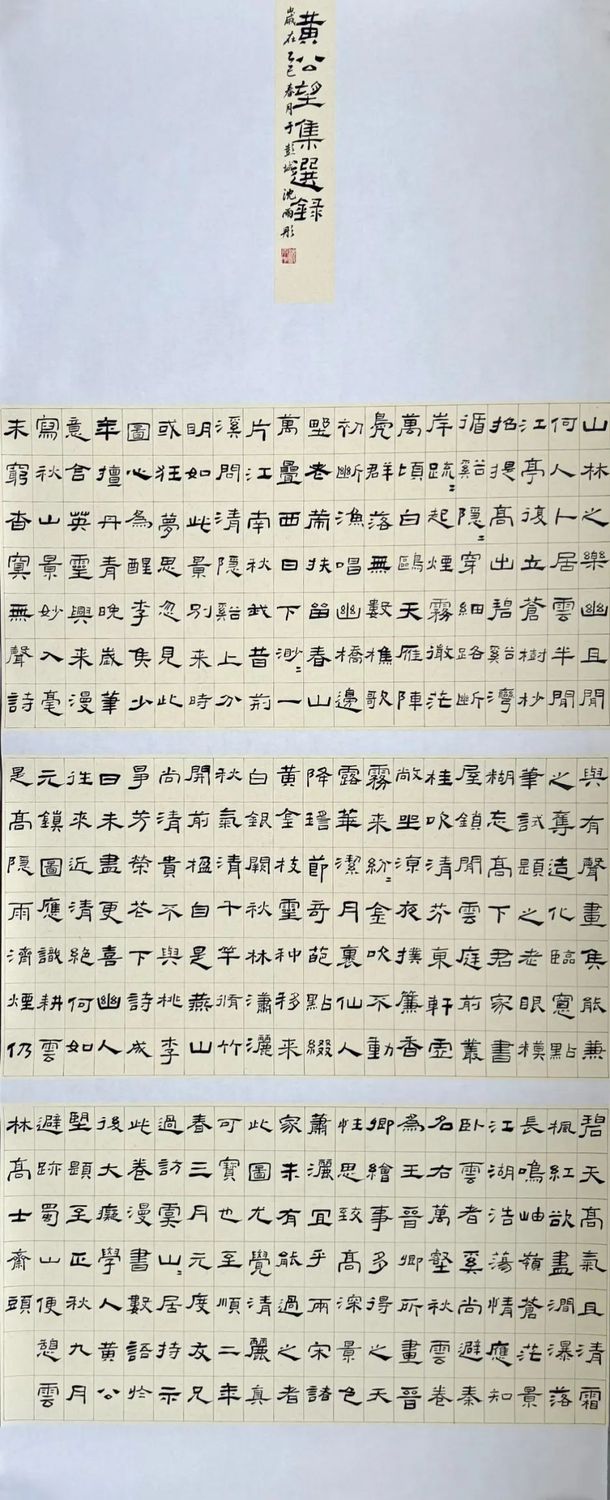 黄公望集選録
歲在乙巳春月于彭城沈雨彤
山林之樂幽且閒
何人卜居雲半間
江亭復立蒼樹杪
招提高出碧谿灣
循谿隱=穿細路斷
岸疏=起煙霧微茫
萬頃白鷗天雁陣
鳧群落無數樵歌
初斷漁唱幽橋邊
墅老蕭扶留春山
萬疊西日下渺=一
片江南秋我昔荊
溪問清隱谿上分
明如此景別來時
或狂夢思忽見此
圖心為醒李侯少
年擅丹青晚歲筆
意含英靈興來漫
寫秋山景妙入毫
未窮杳冥無聲詩
與有聲畫侯能兼
之奪造化臨窻點
筆試題之老眼模
糊忘高下君家書
屋鎖閒雲庭前叢
桂吹清芬東軒虛
敞坐涼夜撲簾香
霧來紛=金吹不動
露華潔月裏仙人
降節奇葩點綴
黃金枝靈种移來
白銀闕秋林瀟灑
秋氣清千竿脩竹
開前楹自是燕山
尚清貴不與桃李
爭芳榮花下詩成
曰未盡更喜幽人
往來近清絕何如
元鎮圖應識耕雲
是高隱雨濟煙仍
碧天高氣且清霜
楓紅欲盡澗瀑落
長鳴岫嶺蒼茫景
江湖浩蕩情應知
臥雲者奚尚避秦
名右萬壑秋雲卷
為王晉卿所畫晉
卿繪事多得之天
性思致高深景色
蕭灑宜乎兩宋諸
家未有能過之者
此圖尤覺清麗真
可寶也至順二年
春三月元度友兄
過訪虞山=居持示
此卷漫書數語於
後大癡學人黃公
墅題至正秋九月
避跡蜀山便憩雲
林高士齋頭